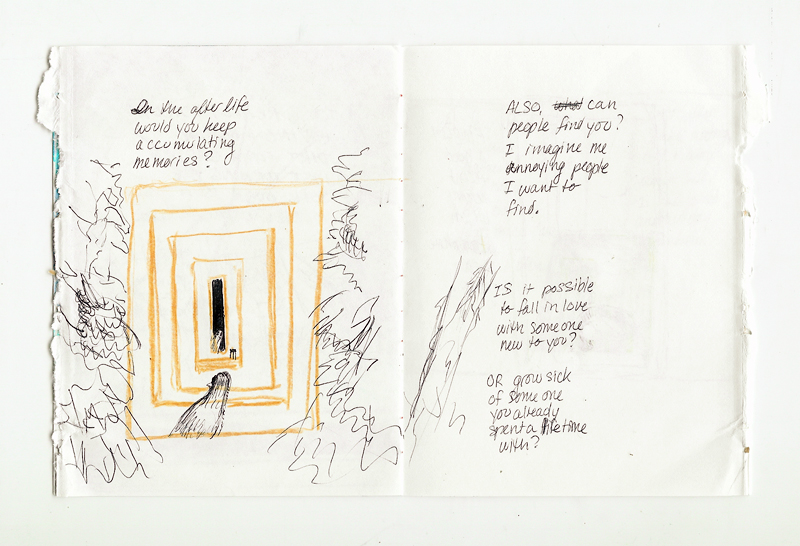 In the after life
would you keep
accumulating
memories?
ALSO, what can
people find you?
I imagine me
annoying people
I want to
find.
IS it possible
to fall in love
with someone
new to you?
OR grow sick
of someone
you already
spent a lifetime
with?